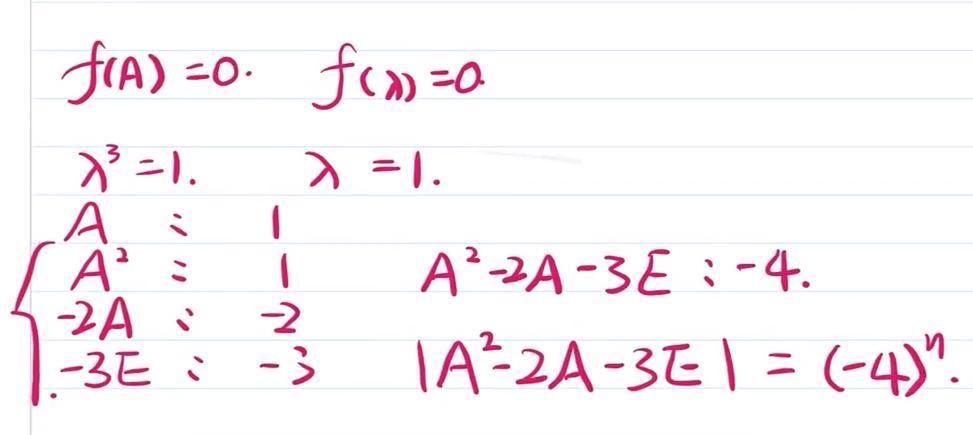 f(A)=0. f(λ)=0.
λ³=1. λ=1.
A : 1
A² : 1 A²-2A-3E : -4.
-2A : -2
-3E : -3 |A²-2A-3E| = (-4)ⁿ.